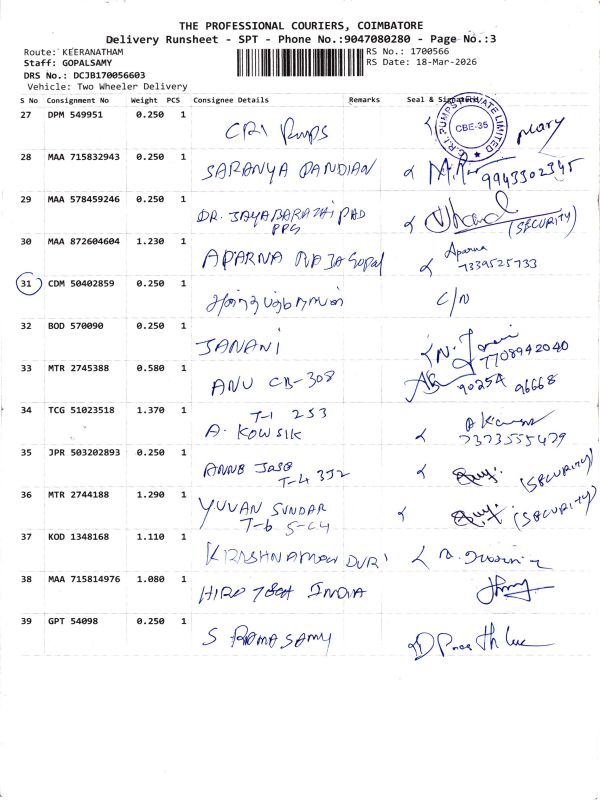 THE PROFESSIONAL COURIERS, COIMBATORE
Delivery Runsheet - SPT - Phone No.:9047080280 - Page No.:3
Route: KEERANATHAM
RS No.: 1700566
Staff: GOPALSAMY
RS Date: 18-Mar-2026
DRS No.: DCJB170056603
Vehicle: Two Wheeler Delivery
S No Consignment No Weight PCS Consignee Details Remarks Seal &
27 DPM 549951 0.250 1 CRI Pumps
PUMPS PRIVATE LIMITED
CBE-35
Mary
28 MAA 715832943 0.250 1 SARANYA PANDIAN
9943302345
29 MAA 578459246 0.250 1 DR. JAYABARATHI
PPG
(SECURITY)
30 MAA 872604604 1.230 1 APARNA RAJAGopal
Aparna
7339525733
31 CDM 50402859 0.250 1 C/N
32 BOD 570090 0.250 1 JANANI
7708942040
33 MTR 2745388 0.580 1 ANU CB-308
90254 96668
34 TCG 51023518 1.370 1 T-1 253
A. KOWSIK
7373555479
35 JPR 503202893 0.250 1 ANNE JOSE
T-4 352
(SECURITY)
36 MTR 2744188 1.290 1 YUVAN SUNDAR
T-6
(SECURITY)
37 KOD 1348168 1.110 1
38 MAA 715814976 1.080 1 HIRO TECH INDIA
39 GPT 54098 0.250 1 S RAMASAMY